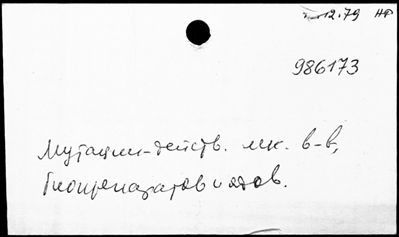 12.79 НФ
986173
Мутации-действ. мк. в-в,
биопрепаратов и ядов.